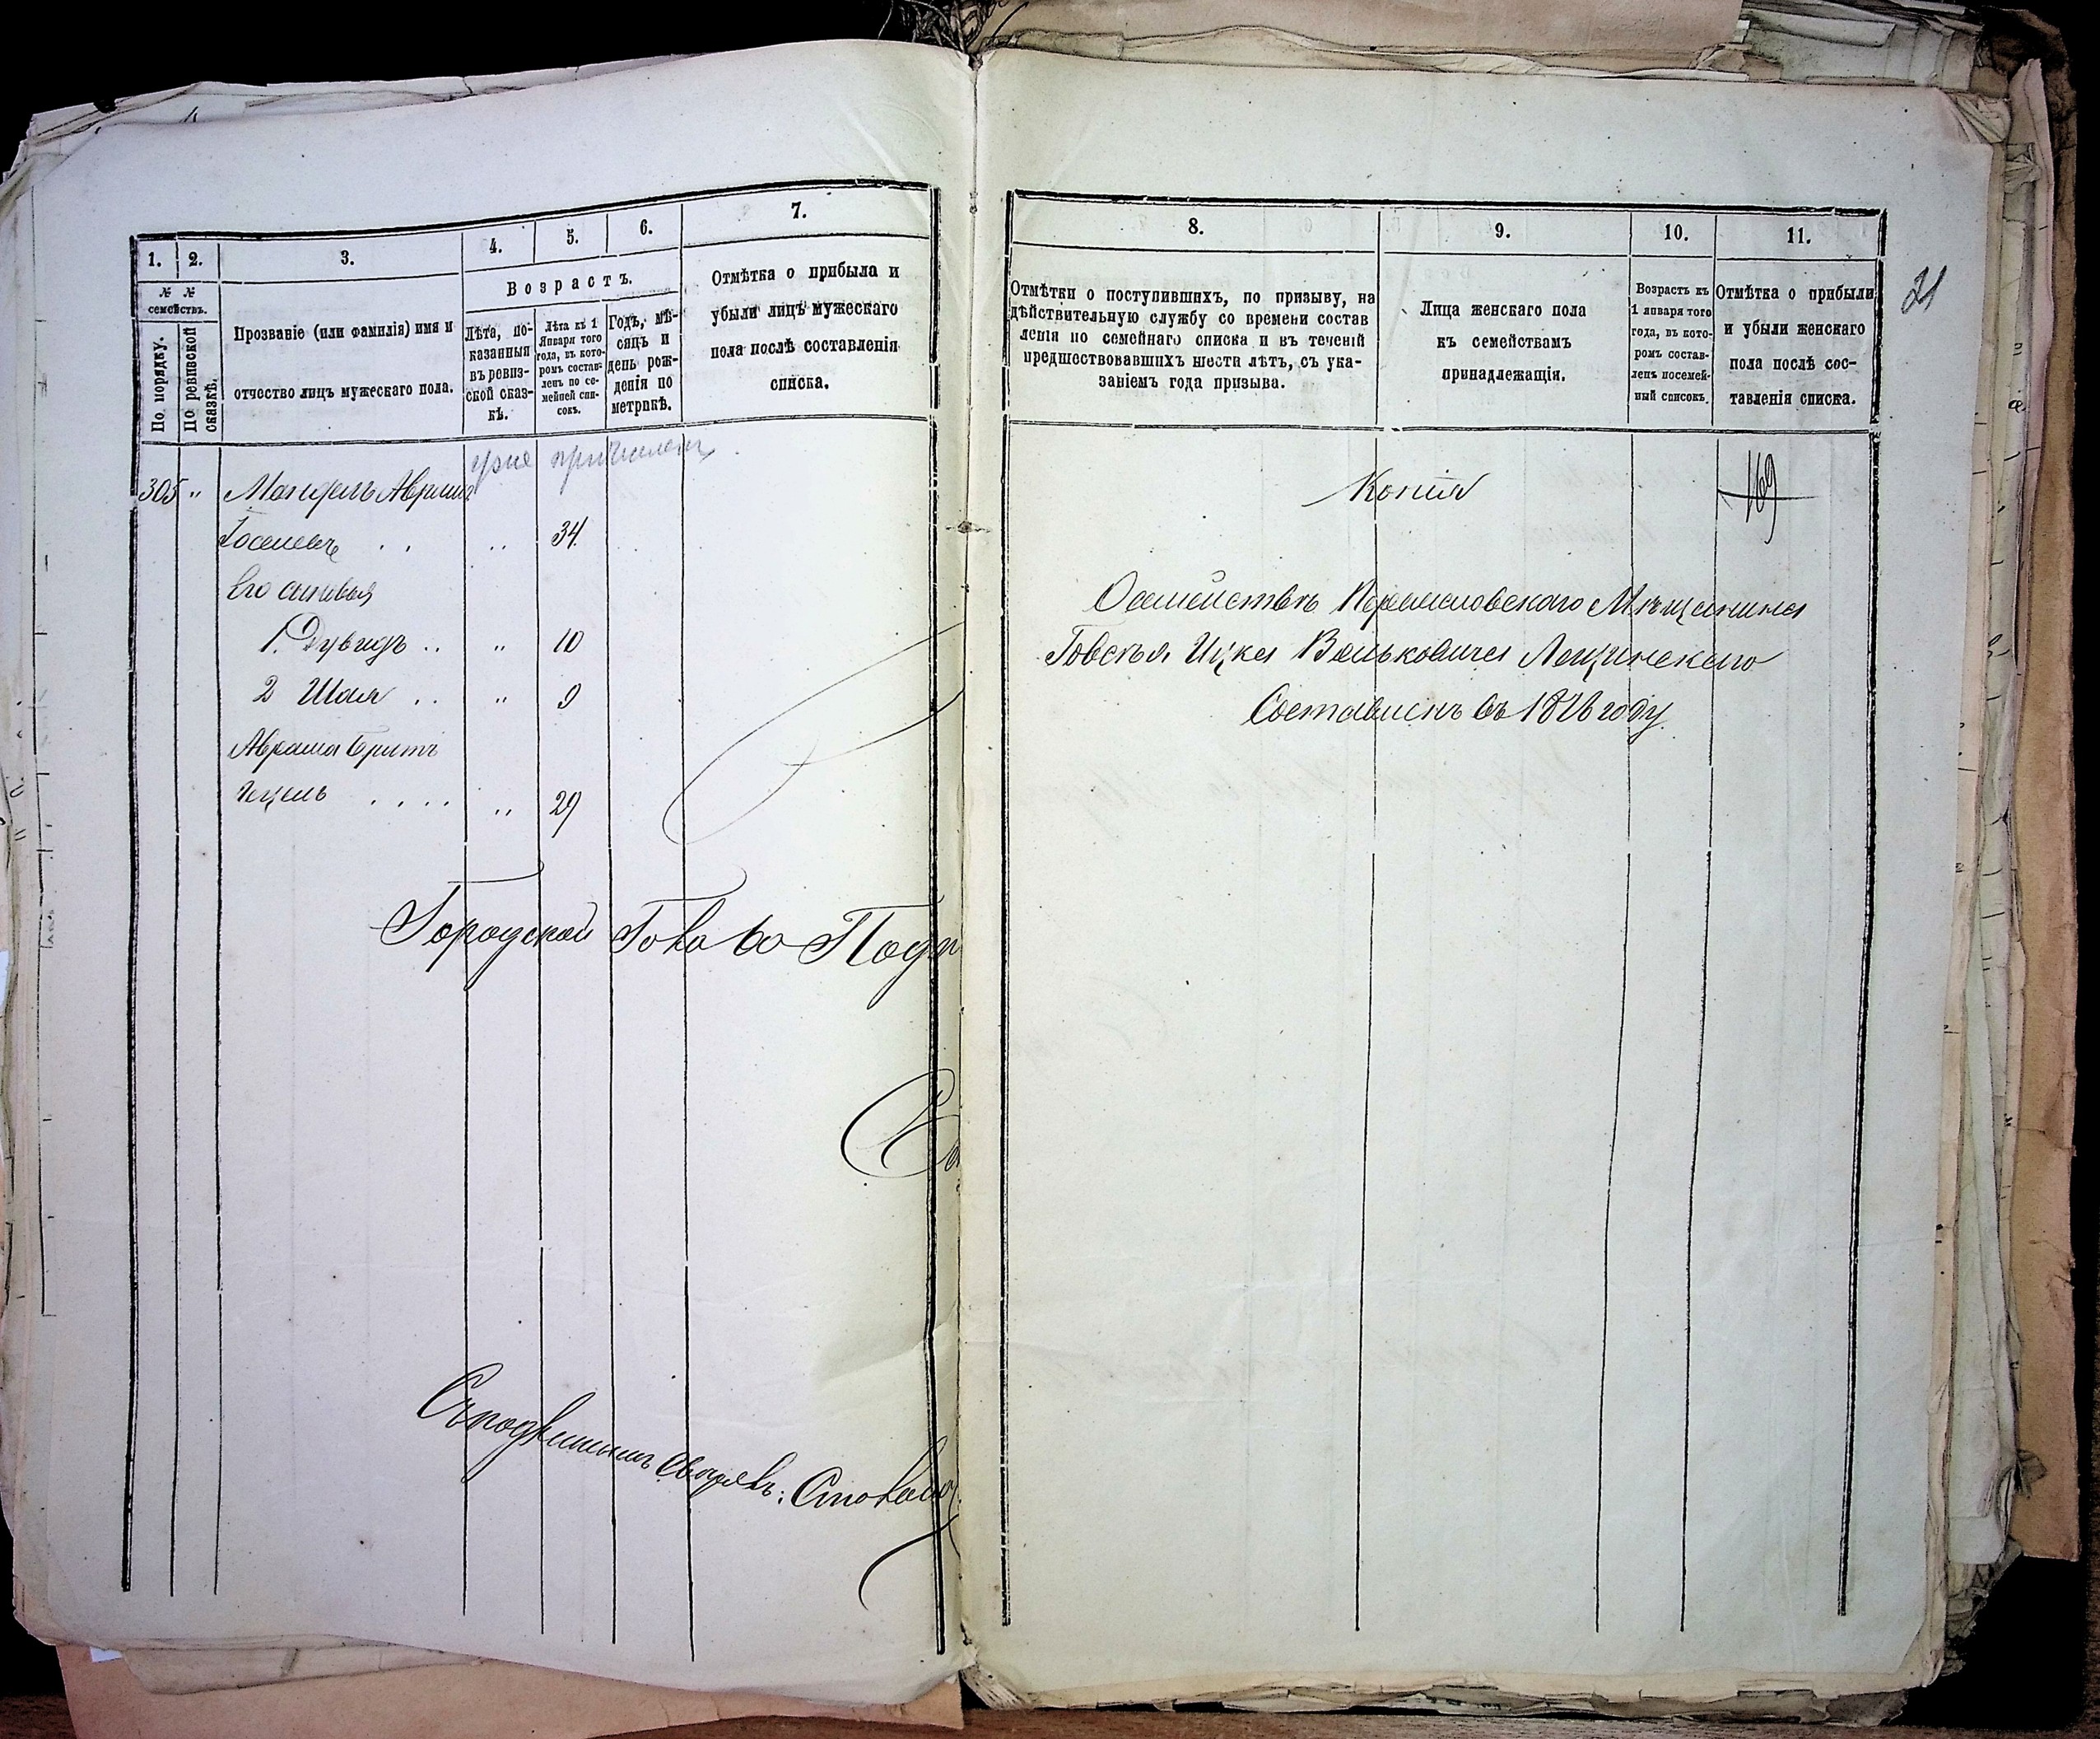 1. 2. 3. 4. 5. 6. 7.
№ № семействъ.
По порядку.
По ревизской сказкѣ.
Прозваніе (или фамилія) имя и
отчество лицъ мужескаго пола.
Возрастъ.
Лѣта, по-
казанныя
въ ревиз-
ской сказ-
кѣ.
Лѣта къ 1
Января того
года, въ кото-
ромъ состав-
ленъ по се-
мейней спи-
сокъ.
Годъ, мѣ-
сяцъ и
день рож-
денія по
метрикѣ.
Отмѣтка о прибыла и
убыли лицъ мужескаго
пола послѣ составленія
списка.
305 " Мандель Аврамъ
34
Его сыновья
1. Дувидъ .. " 10
2 Шая .. " 9
Аврама братъ
.... " 29
Городской Голова
8. 9. 10. 11.
Отмѣтки о поступившихъ, по призыву, на
дѣйствительную службу со времени состав
ленія по семейнаго списка и въ теченій
предшествовавшихъ шести лѣтъ, съ ука-
заніемъ года призыва.
Лица женскаго пола
къ семействамъ
принадлежащія.
Возрастъ къ
1 января того
года, въ кото-
ромъ состав-
ленъ посемей-
ный списокъ.
Отмѣтка о прибыли
и убыли женскаго
пола послѣ сос-
тавленія списка.
21
Копія
169
О семействѣ Мѣщанина
Ицка Вольковича Лещинскаго
Составленъ въ 1876 году.